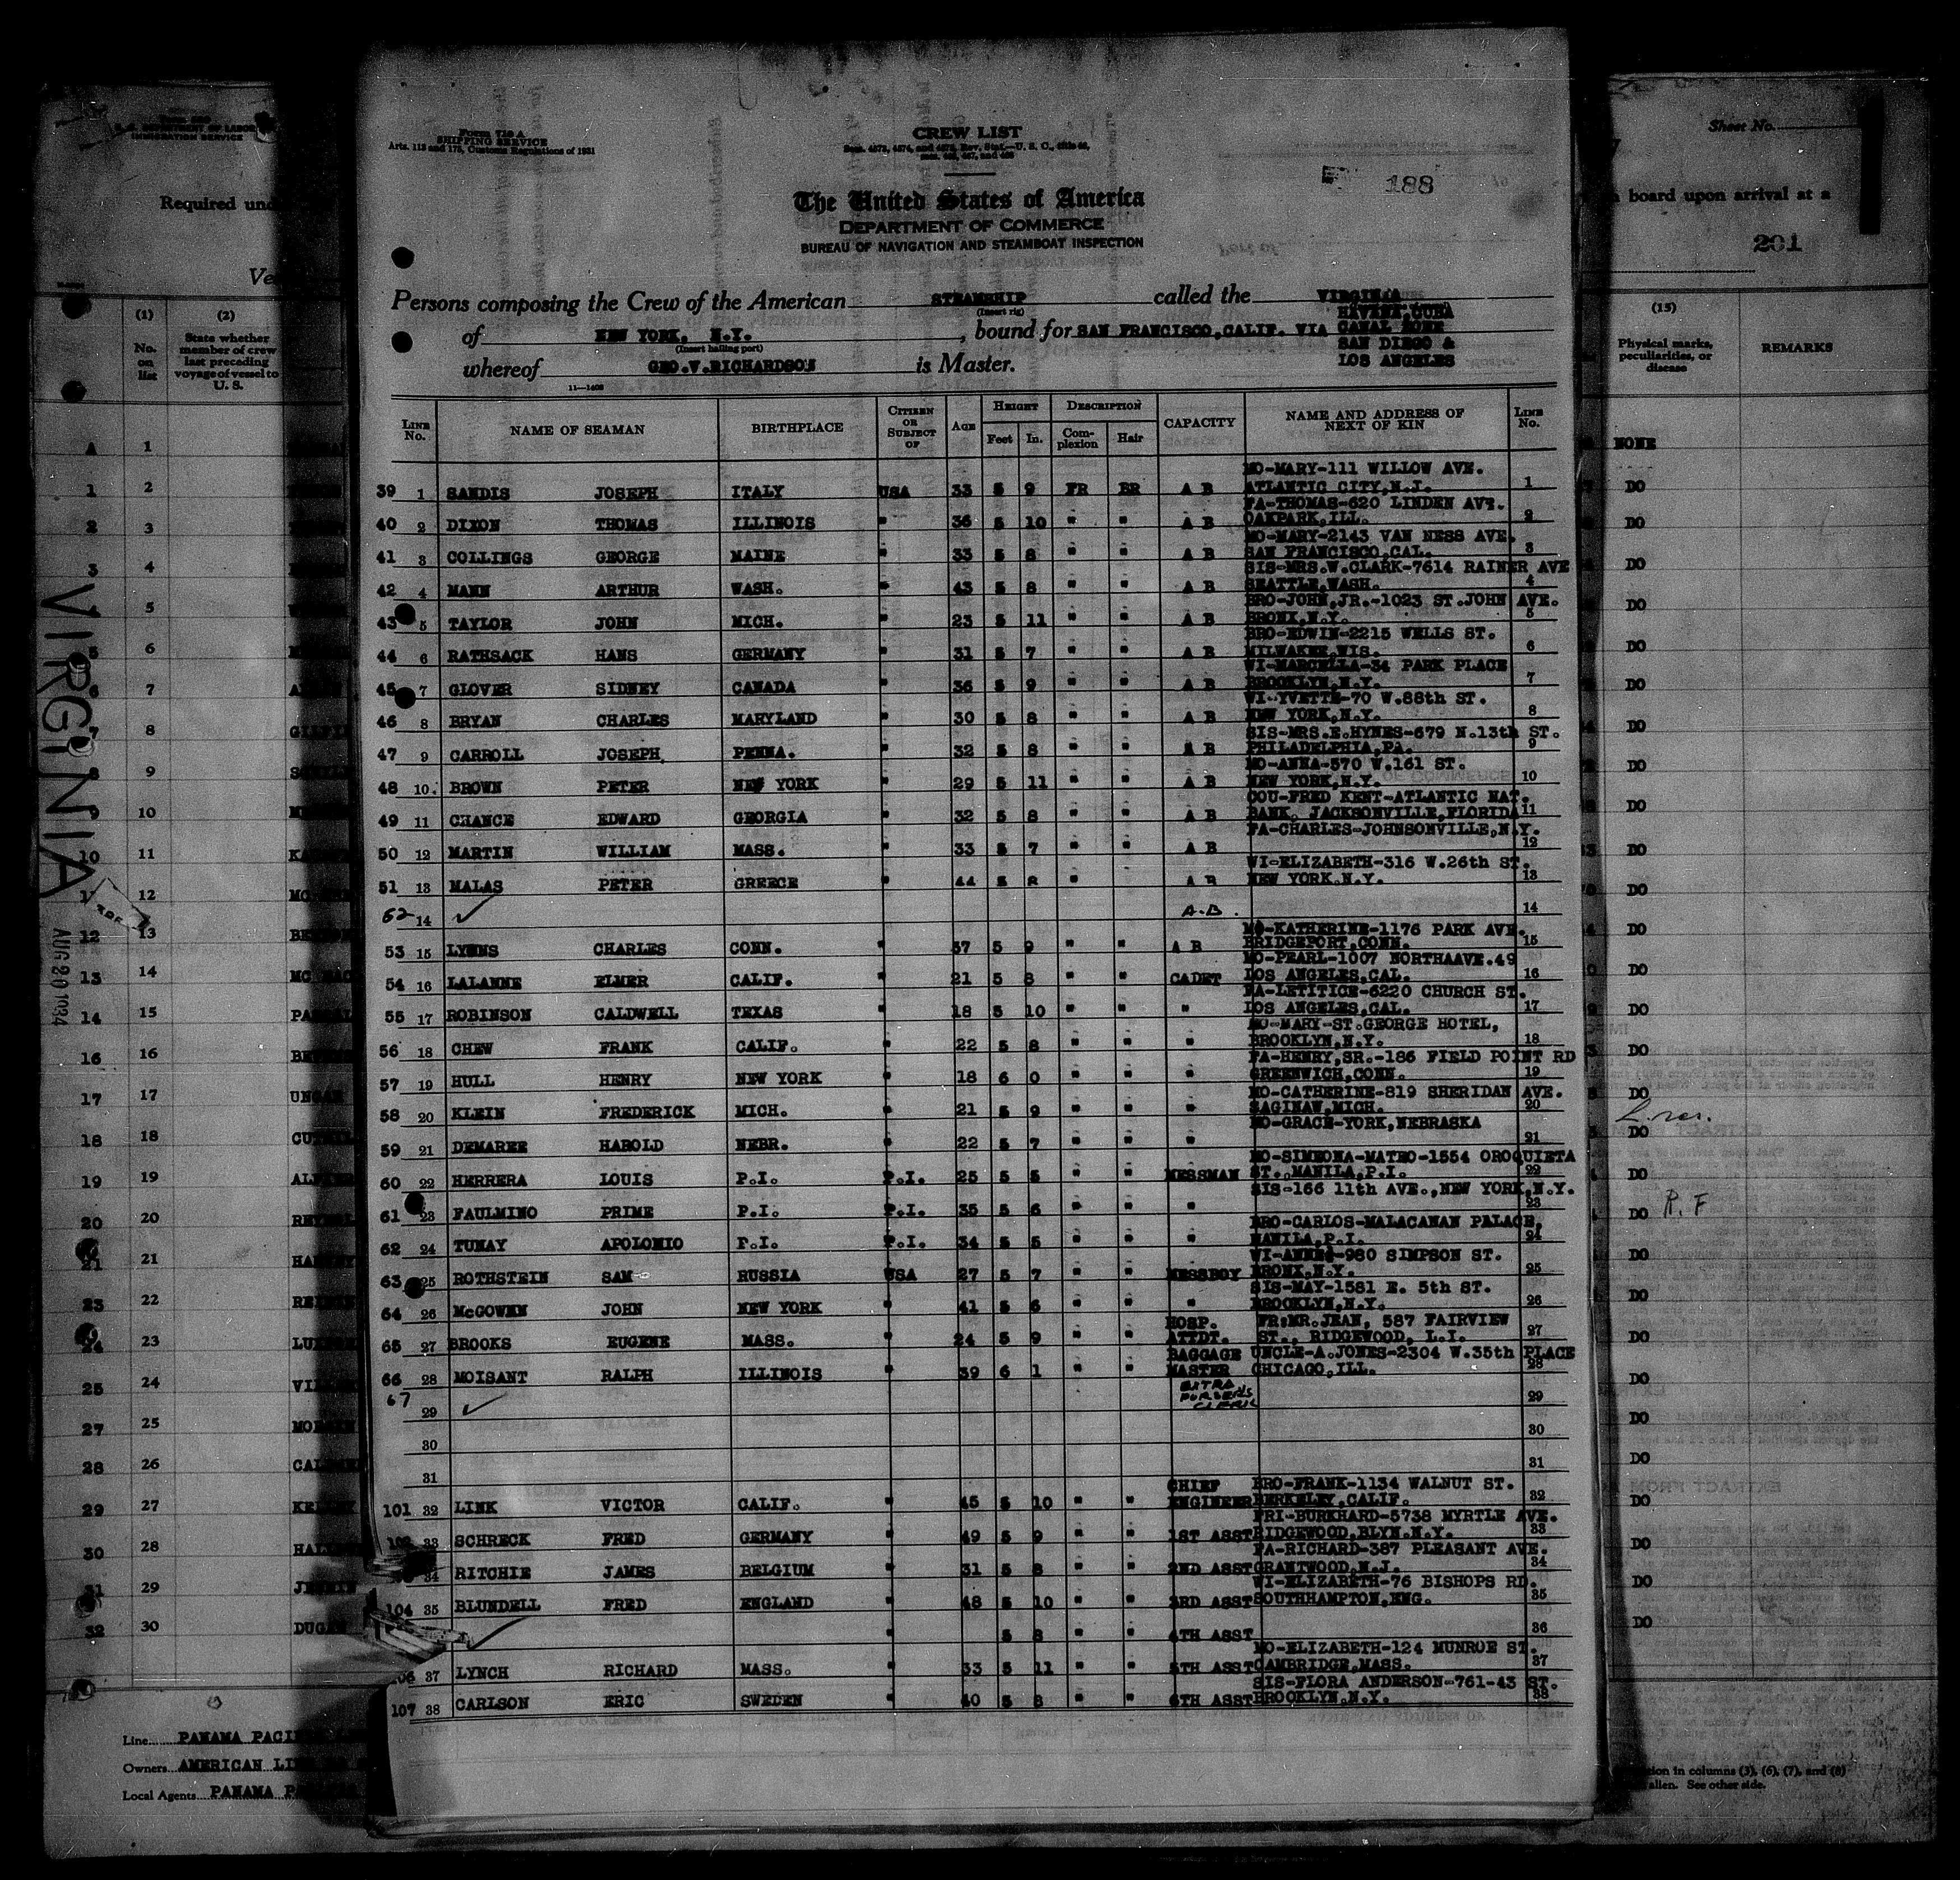 Form 710 A
SHIPPING SERVICE
Arts. 113 and 175, Customs Regulations of 1931
CREW LIST
188
The United States of America
DEPARTMENT OF COMMERCE
BUREAU OF NAVIGATION AND STEAMBOAT INSPECTION
Persons composing the Crew of the American STEAMSHIP called the VIRGINIA
(Insert rig) HAVANA, CUBA
of NEW YORK, N.Y., bound for SAN FRANCISCO, CALIF. VIA CANAL ZONE
(Insert hailing port) SAN DIEGO &
whereof GEO.V.RICHARDSON is Master. LOS ANGELES
LINE No. NAME OF SEAMAN BIRTHPLACE CITIZEN OR SUBJECT OF AGE HEIGHT Feet In. DESCRIPTION Complexion Hair CAPACITY NAME AND ADDRESS OF NEXT OF KIN LINE No.
MO-MARY-111 WILLOW AVE.
39 1 SANDIS JOSEPH ITALY USA 33 5 9 FR BR A B ATLANTIC CITY,N.J. 1
FA-THOMAS-620 LINDEN AVE.
40 2 DIXON THOMAS ILLINOIS " 36 5 10 " " A B OAKPARK,ILL. 2
MO-MARY-2143 VAN NESS AVE.
41 3 COLLINGS GEORGE MAINE " 33 5 8 " " A B SAN FRANCISCO,CAL. 3
SIS-MRS.W.CLARK-7614 RAINER AVE
42 4 MANN ARTHUR WASH. " 43 5 8 " " A B SEATTLE,WASH. 4
BRO-JOHN,JR.-1023 ST.JOHN AVE.
43 5 TAYLOR JOHN MICH. " 23 5 11 " " A B BRONX,N.Y. 5
BRO-EDWIN-2215 WELLS ST.
44 6 RATHSACK HANS GERMANY " 31 5 7 " " A B MILWAKEE,WIS. 6
WI-MARCELLA-34 PARK PLACE
45 7 GLOVER SIDNEY CANADA " 36 5 9 " " A B BROOKLYN,N.Y. 7
WI-YVETTE-70 W.88th ST.
46 8 BRYAN CHARLES MARYLAND " 30 5 8 " " A B NEW YORK,N.Y. 8
SIS-MRS.E.HYNES-679 N.13th ST.
47 9 CARROLL JOSEPH PENNA. " 32 5 8 " " A B PHILADELPHIA,PA. 9
MO-ANNA-570 W.161 ST.
48 10 BROWN PETER NEW YORK " 29 5 11 " " A B NEW YORK,N.Y. 10
COU-FRED KENT-ATLANTIC NAT.
49 11 CHANCE EDWARD GEORGIA " 32 5 8 " " A B BANK, JACKSONVILLE,FLORIDA 11
FA-CHARLES-JOHNSONVILLE,N.Y.
50 12 MARTIN WILLIAM MASS. " 33 5 7 " " A B 12
WI-ELIZABETH-316 W.26th ST.
51 13 MALAS PETER GREECE " 44 5 8 " " A B NEW YORK,N.Y. 13
52 14 ✓ A.B. 14
MO-KATHERINE-1176 PARK AVE.
53 15 LYONS CHARLES CONN. " 37 5 9 " " A B BRIDGEPORT,CONN. 15
MO-PEARL-1007 NORTHAAVE.49
54 16 LALANNE ELMER CALIF. " 21 5 8 " " CADET LOS ANGELES,CAL. 16
MA-LETITICE-6220 CHURCH ST.
55 17 ROBINSON CALDWELL TEXAS " 18 5 10 " " " LOS ANGELES,CAL. 17
MO-MARY-ST.GEORGE HOTEL,
56 18 CHEW FRANK CALIF. " 22 5 8 " " " BROOKLYN,N.Y. 18
FA-HENRY,SR.-186 FIELD POINT RD
57 19 HULL HENRY NEW YORK " 18 6 0 " " " GREENWICH,CONN. 19
MO-CATHERINE-819 SHERIDAN AVE.
58 20 KLEIN FREDERICK MICH. " 21 5 9 " " " SAGINAW,MICH. 20
MO-GRACE-YORK,NEBRASKA
59 21 DEMAREE HAROLD NEBR. " 22 5 7 " " " 21
MO-SIMEONA-MATEO-1554 OROQUIETA
60 22 HERRERA LOUIS P.I. P.I. 25 5 5 " " MESSMAN ST. MANILA,P.I. 22
SIS-166 11th AVE.,NEW YORK,N.Y.
61 23 FAULMINO PRIME P.I. P.I. 35 5 6 " " " 23
BRO-CARLOS-MALACANAN PALACE,
62 24 TUNAY APOLONIO P.I. P.I. 34 5 5 " " " MANILA,P.I. 24
WI-ANNE-980 SIMPSON ST.
63 25 ROTHSTEIN SAM RUSSIA USA 27 5 7 " " MESSBOY BRONX,N.Y. 25
SIS-MAY-1581 E. 5th ST.
64 26 McGOWEN JOHN NEW YORK " 41 5 6 " " " BROOKLYN,N.Y. 26
HOSP. FR:MR.JEAN, 587 FAIRVIEW
65 27 BROOKS EUGENE MASS. " 24 5 9 " " ATTDT. ST., RIDGEWOOD, L.I. 27
BAGGAGE UNCLE-A.JONES-2304 W.35th PLACE
66 28 MOISANT RALPH ILLINOIS " 39 6 1 " " MASTER CHICAGO,ILL. 28
67 29 ✓ EXTRA PURSERS CLERK 29
30 30
31 31
CHIEF BRO-FRANK-1134 WALNUT ST.
101 32 LINK VICTOR CALIF. " 45 5 10 " " ENGINEER BERKELEY,CALIF. 32
FRI-BURKHARD-5738 MYRTLE AVE.
102 33 SCHRECK FRED GERMANY " 49 5 9 " " 1ST ASST RIDGEWOOD,BLYN.N.Y. 33
FA-RICHARD-387 PLEASANT AVE.
34 RITCHIE JAMES BELGIUM " 31 5 8 " " 2ND ASST GRANTWOOD,N.J. 34
WI-ELIZABETH-76 BISHOPS RD.
104 35 BLUNDELL FRED ENGLAND " 48 5 10 " " 3RD ASST SOUTHHAMPTON,ENG. 35
✓ " 5 8 " " 4TH ASST 36
MO-ELIZABETH-124 MUNROE ST.
106 37 LYNCH RICHARD MASS. " 33 5 11 " " 5TH ASST CAMBRIDGE,MASS. 37
SIS-FLORA ANDERSON-761-43 ST.
107 38 CARLSON ERIC SWEDEN " 40 5 8 " " 6TH ASST BROOKLYN,N.Y. 38
DEPARTMENT OF LABOR
IMMIGRATION SERVICE
Required und
(1) (2)
No. on list
State whether member of crew last preceding voyage of vessel to U. S.
VIRGINIA
AUG 20 1934
A 1
1 2
2 3
3 4
5
5 6
6 7
7 8
8 9
9 10
10 11
11 12
12 13
13 14
14 15
16 16
17 17
18 18
19 19
20 20
21 21
23 22
24 23
25 24
27 25
28 26
29 27
30 28
31 29
32 30
Line PANAMA PACI
Owners AMERICAN LI
Local Agents PANAMA P
Sheet No.
board upon arrival at a
201
(15)
Physical marks, peculiarities, or disease
REMARKS
NONE
DO
DO
DO
DO
DO
DO
DO
DO
DO
DO
DO
DO
DO
DO
DO
DO
DO
DO
DO R.F
DO
DO
DO
DO
DO
DO
DO
DO
DO
DO
tion in columns (3), (6), (7), and (8)
alien. See other side.